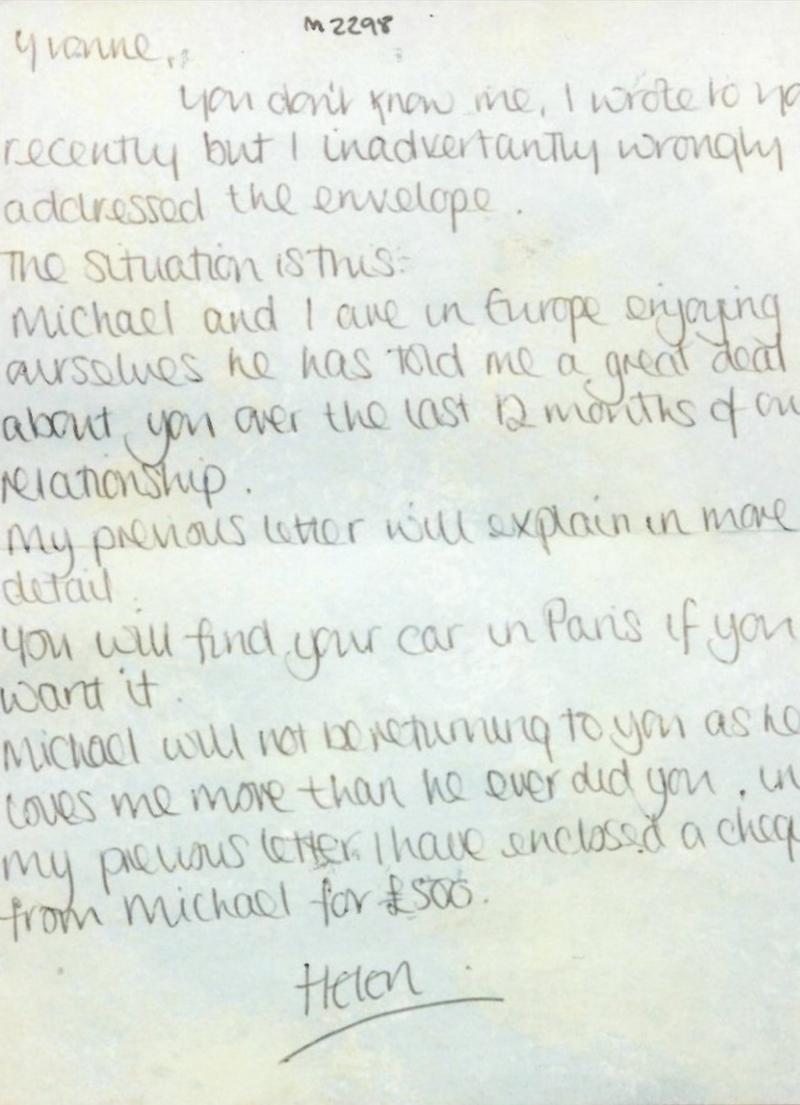 M2298
Yvonne,
You don't know me, I wrote to yo
recently but I inadvertantly wrongly
addressed the envelope.
The situation is this:
Michael and I are in Europe enjoying
ourselves he has told me a great deal
about you over the last 12 months of ou
relationship.
My previous letter will explain in more
detail.
You will find your car in Paris if you
want it.
Michael will not be returning to you as he
loves me more than he ever did you. in
my previous letter I have enclosed a cheq
from Michael for £500.
Helen